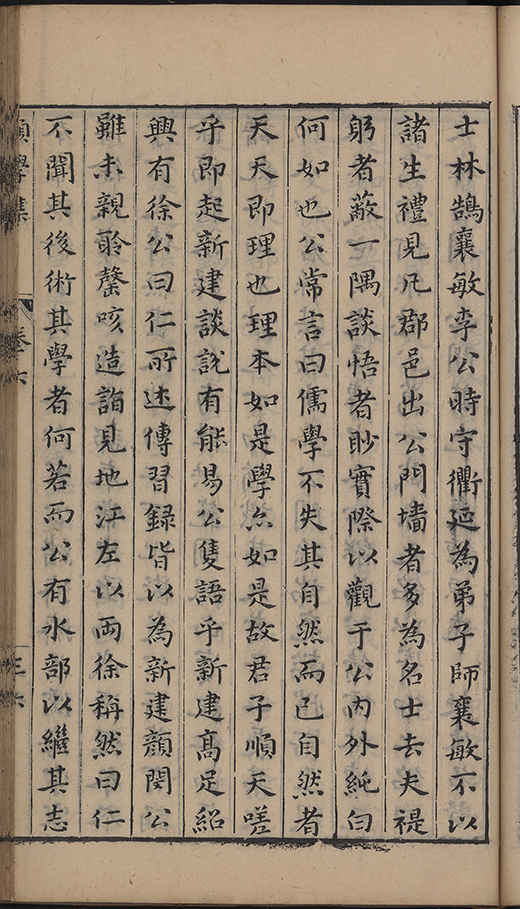 士林鵠襄敏李公時守衢延為弟子師襄敏不以
諸生禮見凡郡邑出公門墻者多為名士去夫禔
躬者蔽一隅談悟者眇實際以觀于公內外純白
何如也公常言曰儒學不失其自然而已自然者
天天即理也理本如是學亦如是故君子順天嗟
乎即起新建談說有能易公隻語乎新建高足紹
興有徐公曰仁所述傳習録皆以為新建顏閔公
雖未親聆謦咳造詣見地江左以兩徐稱然曰仁
不聞其後術其學者何若而公有水部以繼其志
學集
卷六